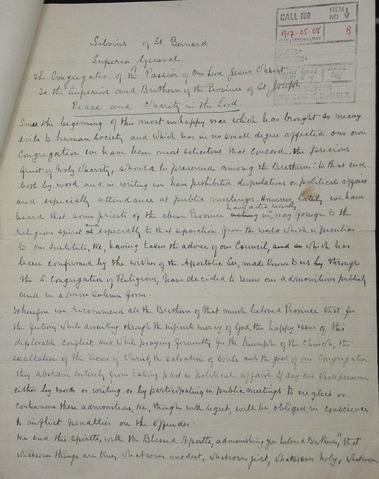 CALL NO
ITEM NO
1917-05-08
8
Silvius of St. Bernard
Superior General
of
The Congregation of the Passion of Our Lord Jesus Christ
To the Superiors and Brethren of the Province of St Joseph
Peace and Charity in the Lord.
Since the beginning of this most unhappy war which has brought so many
evils to human society and which has in no small degree affected our own
Congregation we have been most solicitous that concord, the precious
fruit of Holy Charity, should be preserved among the Brethren: to that end
both by word and in writing we have prohibited disputations on political affairs
and especially attendance at public meetings. However, lately, we have
have acted recently
heard that some priests of the above Province in a way foreign to the
religious spirit and especially to that separation from the world which is peculiar
to our Institute, We, having taken the advice of our Council, and which has
been confirmed by the wishes of the Apostolic See, made known to us by through
the S. Congregation of Religious, have decided to renew our admonitions publicly
and in a more solemn form.
Wherefore we recommend all the Brethren of that much beloved Province that for
the future while awaiting through the infinite mercy of God, the happy issue of this
deplorable conflict and while praying fervently for the triumph of the Church, the
exaltation of the Vicar of Christ, the salvation of souls and the good of our Congregation,
they abstain entirely from taking part in political affairs. If any one shall presume
either by words or writing or by participating in public meetings to neglect or
contravene these admonitions, We, though with regret, will be obliged in conscience
to inflict penalties on the offender.
We end this epistle, with the Blessed Apostle, admonishing you beloved Brethren, "that
whatsoever things are true, whatsoever modest, whatsoever just, whatsoever holy, whatsoever